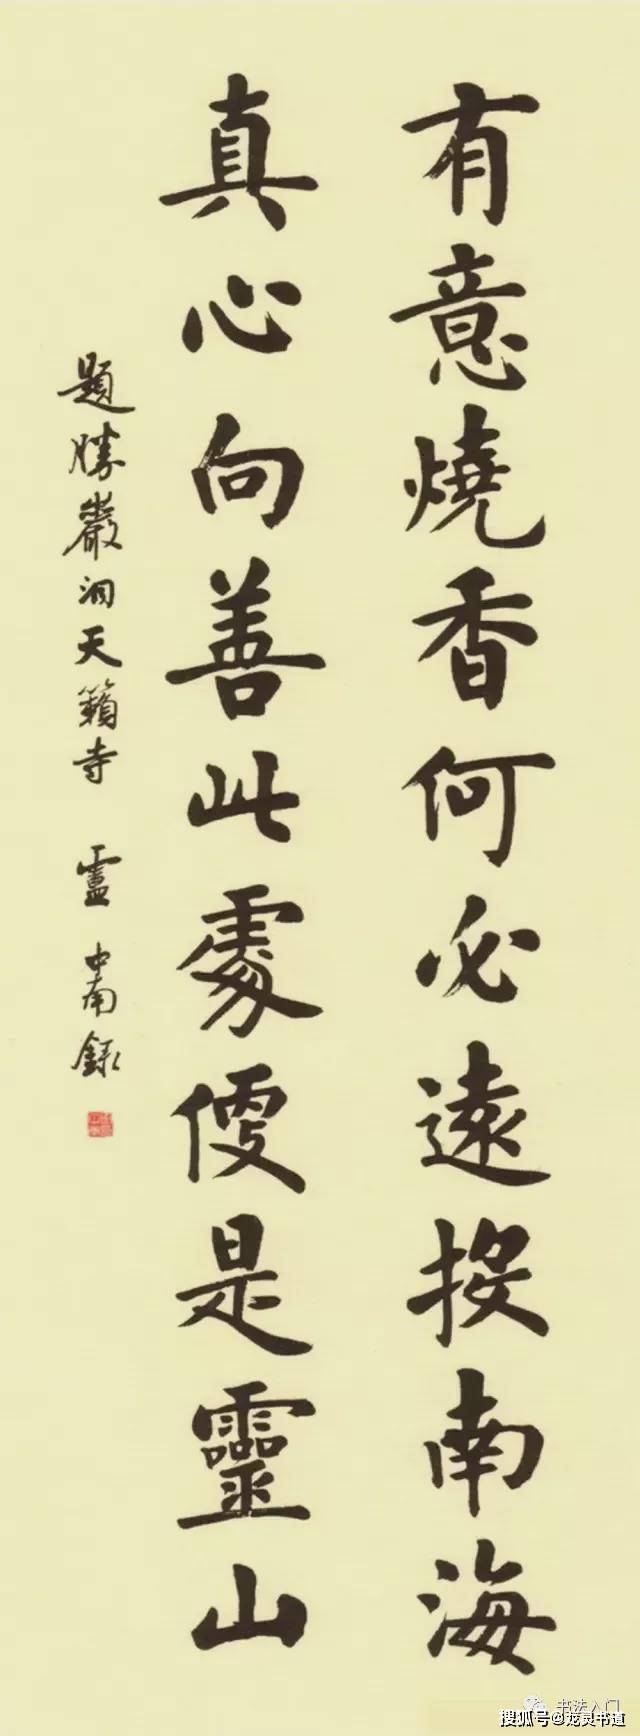 有意燒香何必遠投南海
真心向善此處便是靈山
題勝巖洞天籟寺 盧中南錄
书法入门
搜狐号@龙灵书道